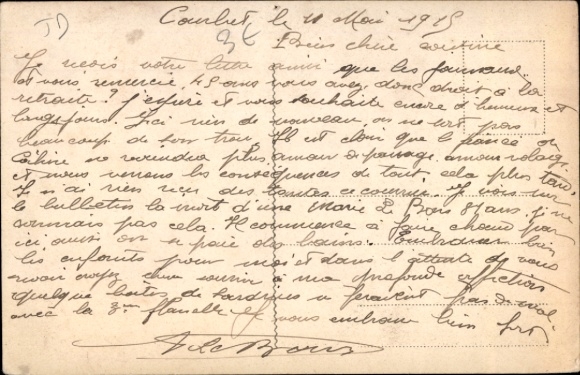 JD
Courbet, le 11 Mai 1915
Bien chère cousine
Je reçois votre lettre ainsi que les journaux.
et vous remercie, 45 ans vous avez donc droit à la
retraite? J'espère et vous souhaite encore d'heureux et
longs jours. Ici rien de nouveau, on ne sort pas
beaucoup de son trou, Il est clair que le
ne reviendra plus, amour de passage, amour volage,
et nous verrons les conséquences de tout cela plus tard
Je n'ai rien reçu des tantes ce courrier. Je vois sur
le bulletin la mort d'une Marie Le Bors ans, je ne
connais pas cela. Il commence à faire chaud par
ici, aussi on se paie des bains. Embrassez bien
les enfants pour moi et dans l'attente de vous
revoir croyez chère cousine à ma profonde affection
Quelques boîtes de sardines ne feraient pas de mal
avec la 3me flanelle. Je vous embrasse bien fort